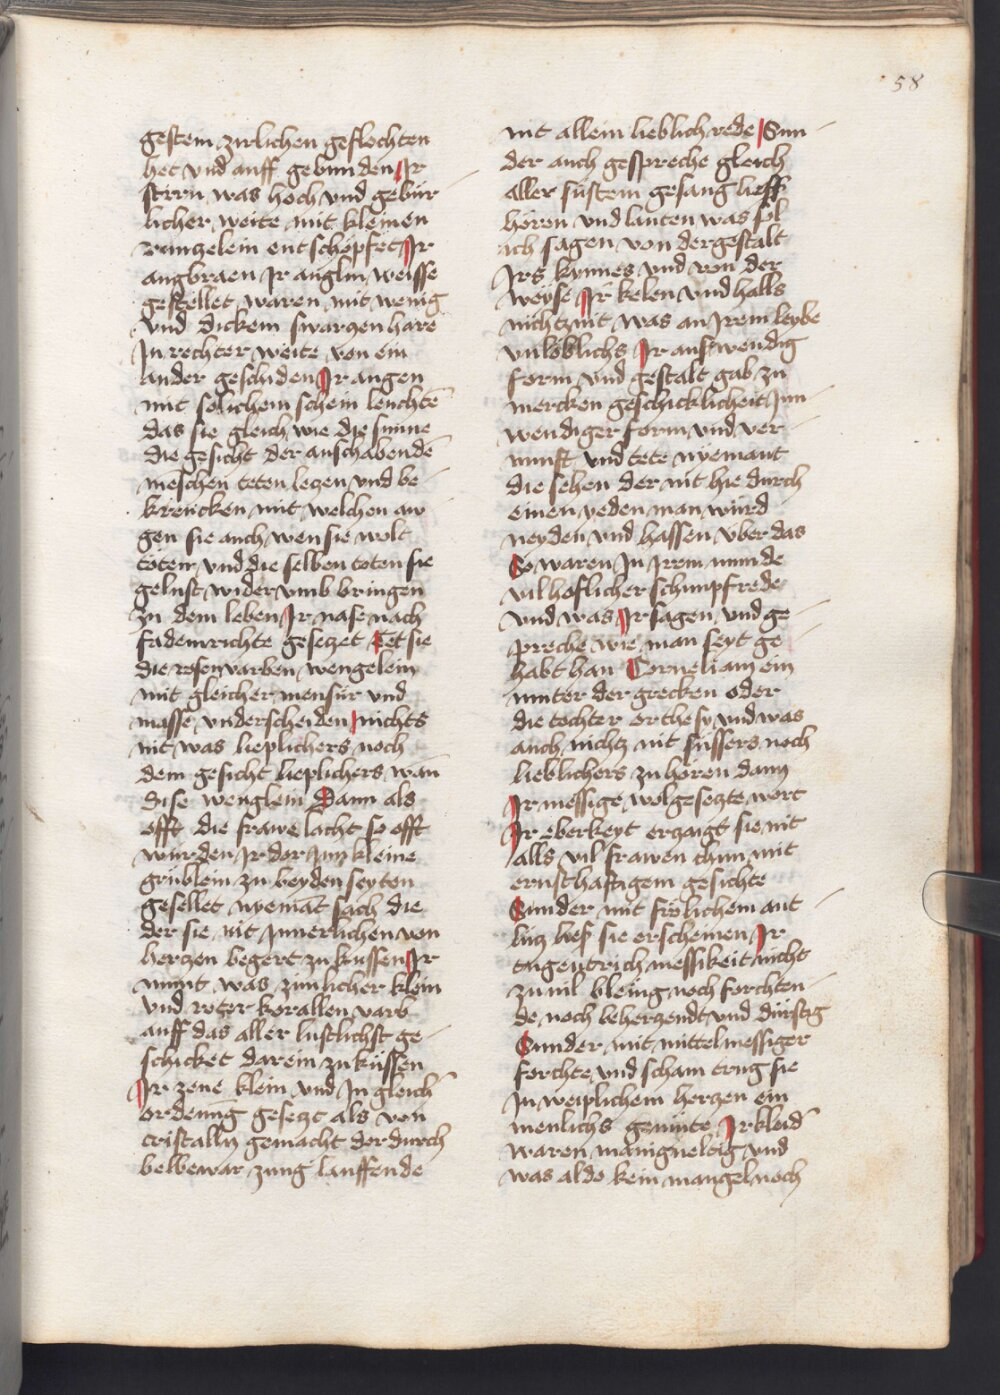 58
gestein zirlichen geflochten
het vnd auff gebunden Ir
stirn was hoch vnd gebür
licher weite mit kleinen
runzelein entschöpfet Ir
augbraen Ir auglin weisse
gestellet waren mit wenig
vnd dickem swarzen hare
In rechter weite von ein
ander geschiden Ir augen
mit solichem schein leuchtē
das sie gleich wie die sunne
die gesicht der anschabendē
menschen teten lezen vnd be
krencken mit welchen aw
gen sie auch wen sie wolt
töten vnd die selben toten sie
gelust wider vmb bringen
zu dem leben Ir nase nach
fademrichte gesetzet Tet sie
die rosenvarben wengelein
mit gleicher mensur vnd
masse vnderscheiden nichts
nit was lieplichers noch
dem gesicht lieplichers wan
dise wenglein Dann als
offt die frawe lacht so offt
wurden Ir dor Inn kleine
grüblein zu beyden seyten
gesellet nyemāt sach die
der sie nit Innerlichen von
herzen begert zu kussen Ir
munt was zimlicher klein
vnd roter korallen varb
auff das aller lustlichst ge
schicket darein zu küssen
Ir zene klein vnd In gleich
ordenūg gesetzt als von
cristalln gemacht dordurch
belbewar zung lauffende
nit allein lieblich rede Sun
der auch gespreche gleich
aller süstem gesang lieff
hören vnd lauten was sol
ich sagen von der gestalt
Irs kynnes vnd von der
weyse Ir kelen vnd halls
nichtz nit was an Irem leybe
vnloblichs Ir auswendig
form vnd gestalt gab zu
mercken geschicklicheit Inn
wendiger form vnd ver
nunft vnd tete nyemant
die sehen der nit hie durch
einen yeden man würd
neyden vnd hassen vber das
So waren In Irem munde
vil hoflicher schimpfrede
vnd was Ir sagen vnd ge
spreche wie man seyt ge
habt han Corneliam ein
muter der grecken oder
die tochter orthesy vnd was
auch nichtz nit süssers noch
lieblichers zu hören dann
Ir messige wolgesetzte wort
Ir eberkeyt erzaigt sie nit
alls vil frawen thun mit
ernsthaftigem gesichte
Sunder mit frölichem ant
lütz lies sie erscheinen Ir
tugentrich messikeit nicht
zu vil bleüg noch forchten
de noch beherzendt vnd dürstig
Sunder mit mittelmessiger
forchte vnd scham trug sie
In weiplichem herzen ein
menlichs gemüte Ir kleid
waren manigueltig vnd
was aldo kein mangel noch